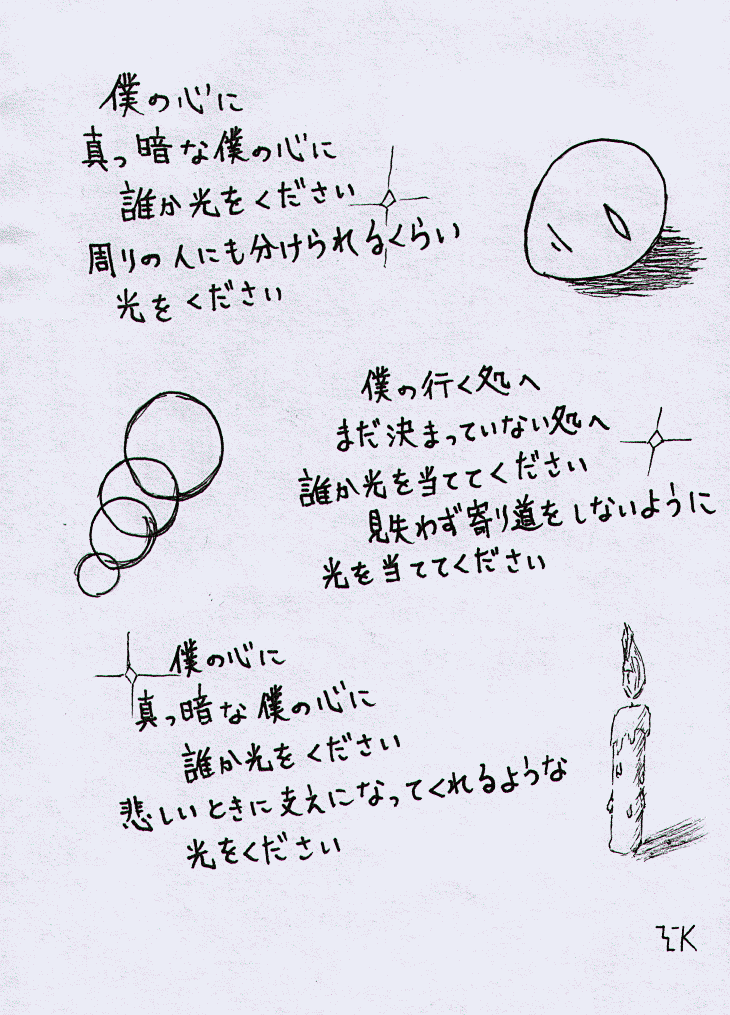 僕の心に
真っ暗な僕の心に
誰か光をください
周りの人にも分けられるくらい
光をください
僕の行く処へ
まだ決まっていない処へ
誰か光を当ててください
見失わず寄り道をしないように
光を当ててください
僕の心に
真っ暗な僕の心に
誰か光をください
悲しいときに支えになってくれるような
光をください